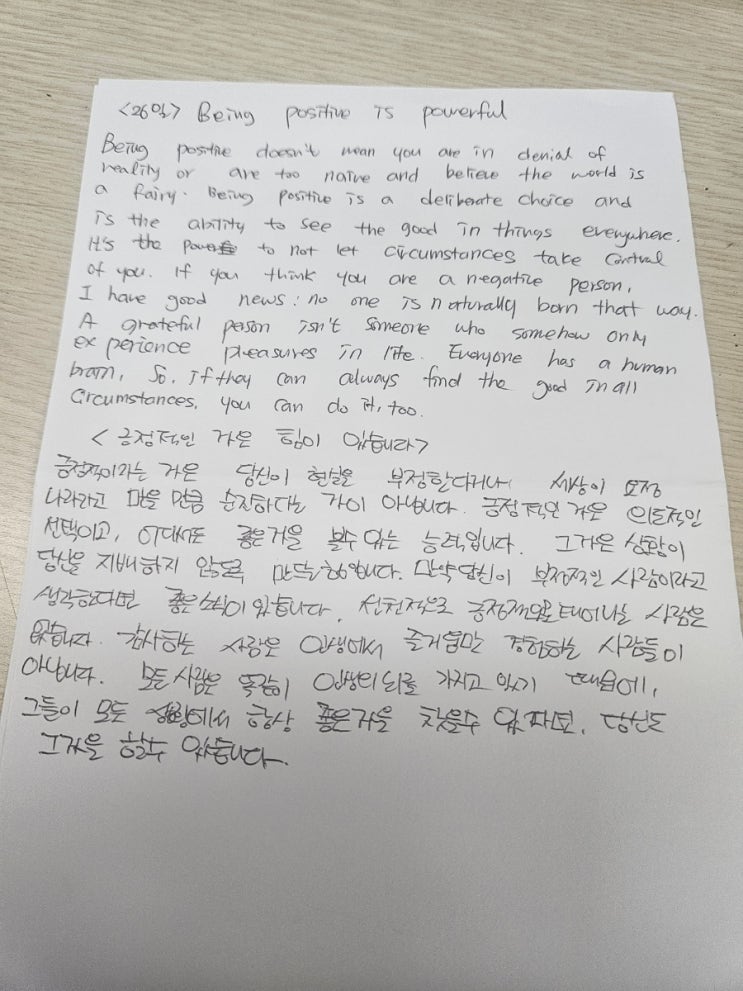 <26일> Being positive is powerful
Being positive doesn't mean you are in denial of
reality or are too naive and believe the world is
a fairy. Being positive is a deliberate choice and
is the ability to see the good in things everywhere.
It's the power to not let circumstances take control
of you. If you think you are a negative person,
I have good news: no one is naturally born that way.
A grateful person isn't someone who somehow only
experience pleasures in life. Everyone has a human
brain, So, if they can always find the good in all
circumstances, you can do it, too.
<긍정적인 것은 힘이 있습니다>
긍정적이라는 것은 당신이 현실을 부정한다거나 세상이 요정
나라라고 믿을 만큼 순진하다는 것이 아닙니다. 긍정적인 것은 의도적인
선택이고, 어디서든 좋은 것을 볼 수 있는 능력입니다. 그것은 상황이
당신을 지배하지 않도록 만드는 힘입니다. 만약 당신이 부정적인 사람이라고
생각한다면 좋은 소식이 있습니다. 선천적으로 긍정적으로 태어나는 사람은
없습니다. 감사하는 사람은 인생에서 즐거움만 경험하는 사람들이
아닙니다. 모든 사람은 똑같이 인생의 뇌를 가지고 있기 때문에,
그들이 모든 상황에서 항상 좋은 것을 찾을 수 있다면, 당신도
그것을 할 수 있습니다.